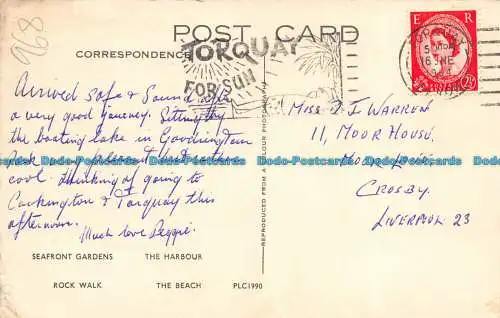 968
POST CARD
CORRESPONDENCE
TORQUAY
FOR SUN
E R
2½
Arrived safe & Sound after
a very good journey. Sitting by
the boating lake in Goodrington
cool. thinking of going
to
Cockington & Torquay this
afternoon.
Much love Peggie.
SEAFRONT GARDENS THE HARBOUR
ROCK WALK THE BEACH PLC1990
REPRODUCED FROM A COLOUR PHOTOGRAPH
MISS J. I WARREN
11, MOOR HOUSE,
MOOR
CROSBY.
LIVERPOOL 23
Dodo-Postcards Dodo-Postcards Dodo-Postcards Dodo-Postcards Dodo-Postcards